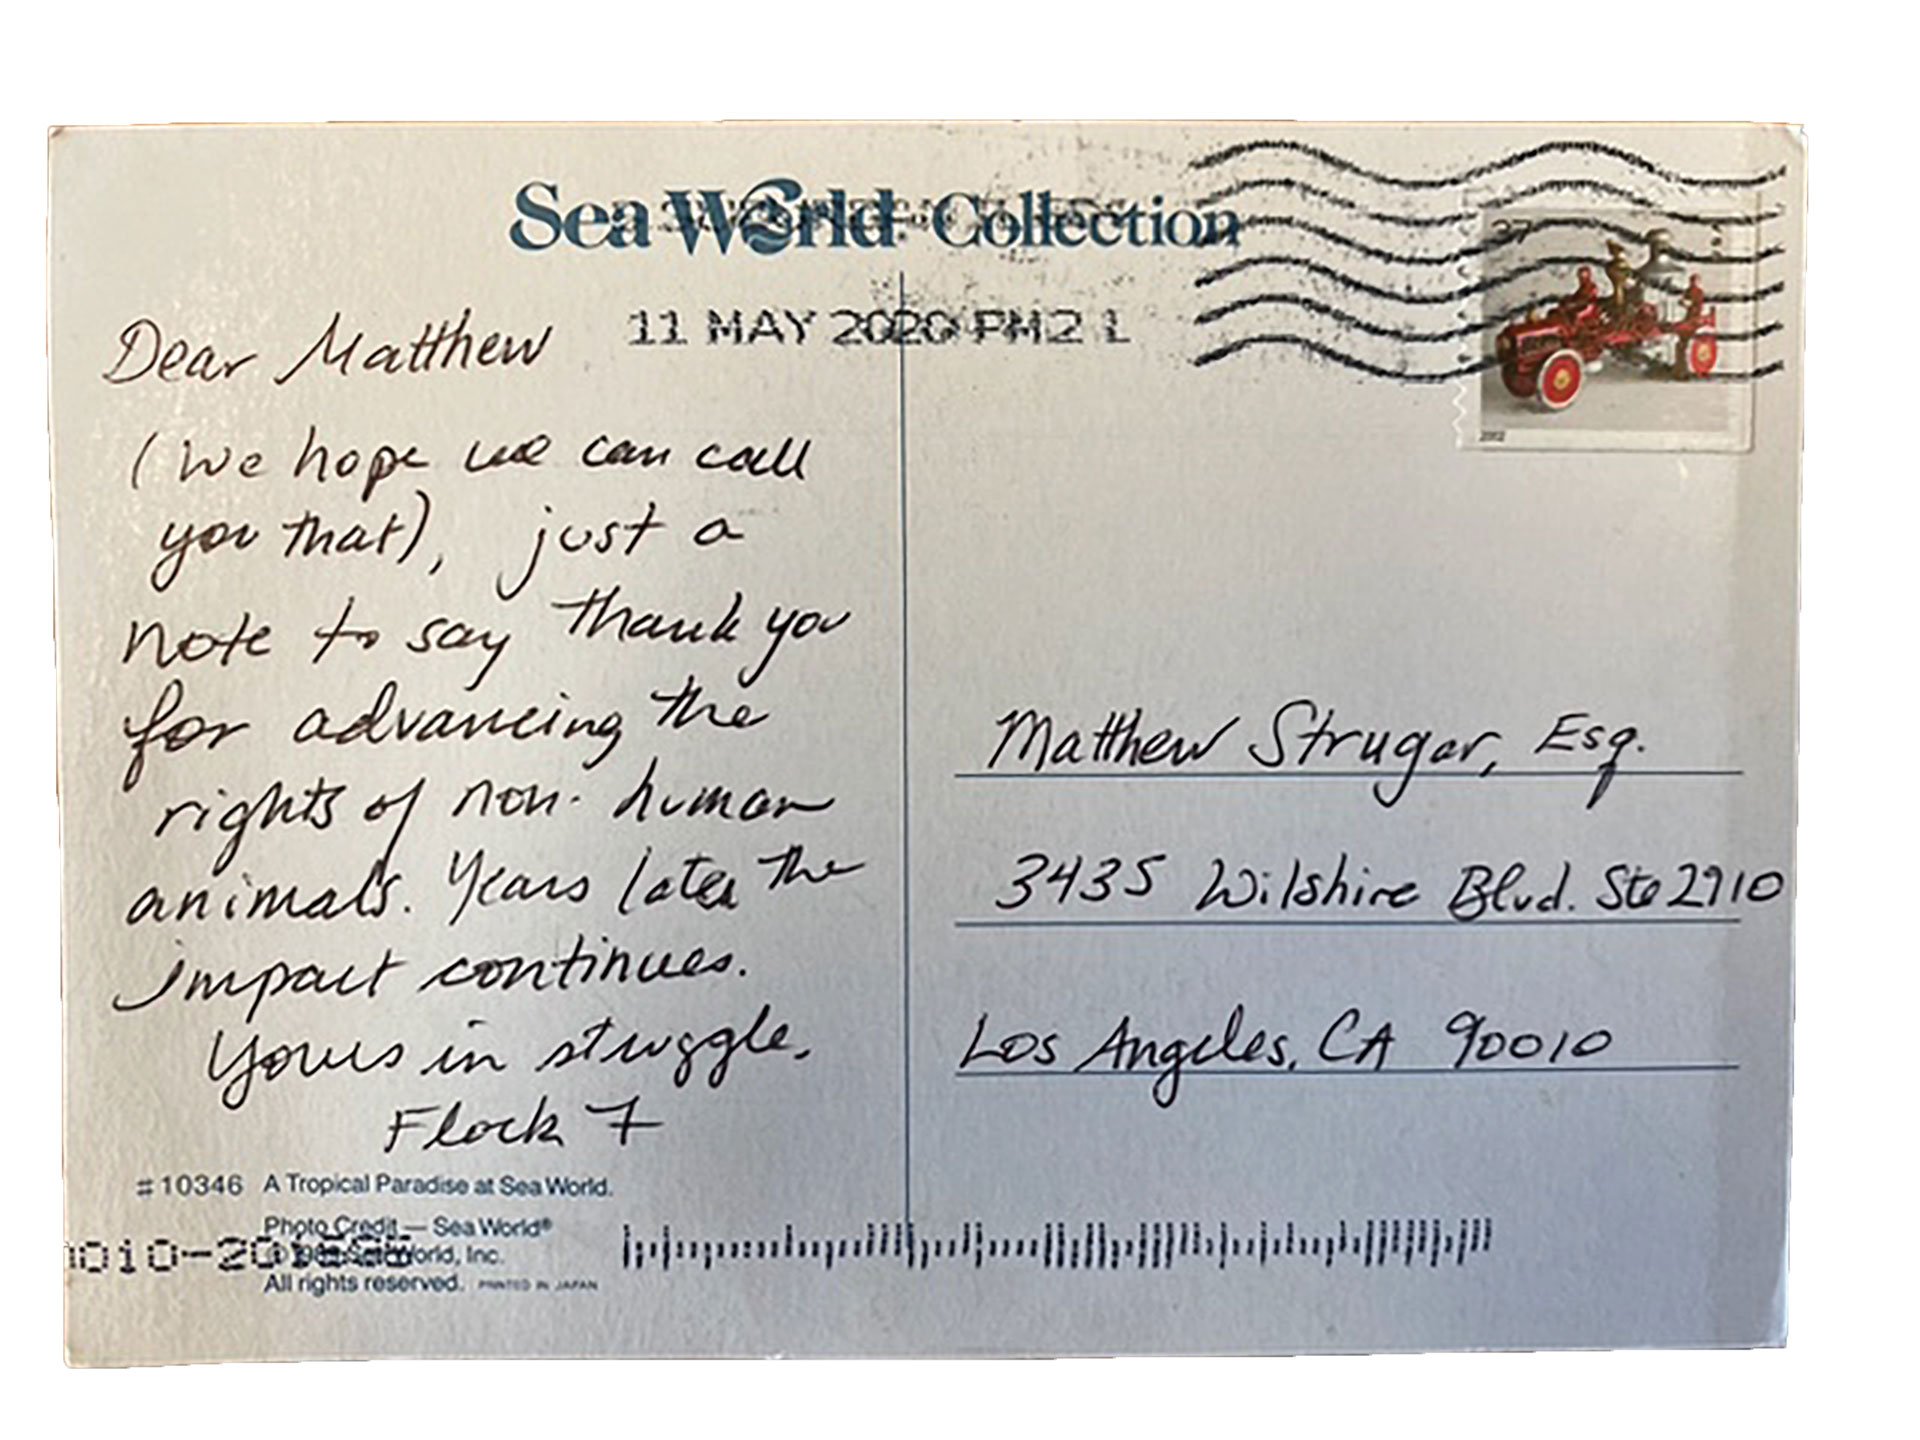 Sea World Collection
11 MAY 2020 PM 2 L
37
2002
Dear Matthew
(We hope we can call
you that), just a
note to say thank you
for advancing the
rights of non-human
animals. Years later the
impact continues.
Yours in struggle,
Flock 7
Matthew Strugar, Esq.
3435 Wilshire Blvd. Ste 2910
Los Angeles, CA 90010
#10346 A Tropical Paradise at Sea World.
Photo Credit — Sea World®
Sea World, Inc.
All rights reserved. PRINTED IN JAPAN